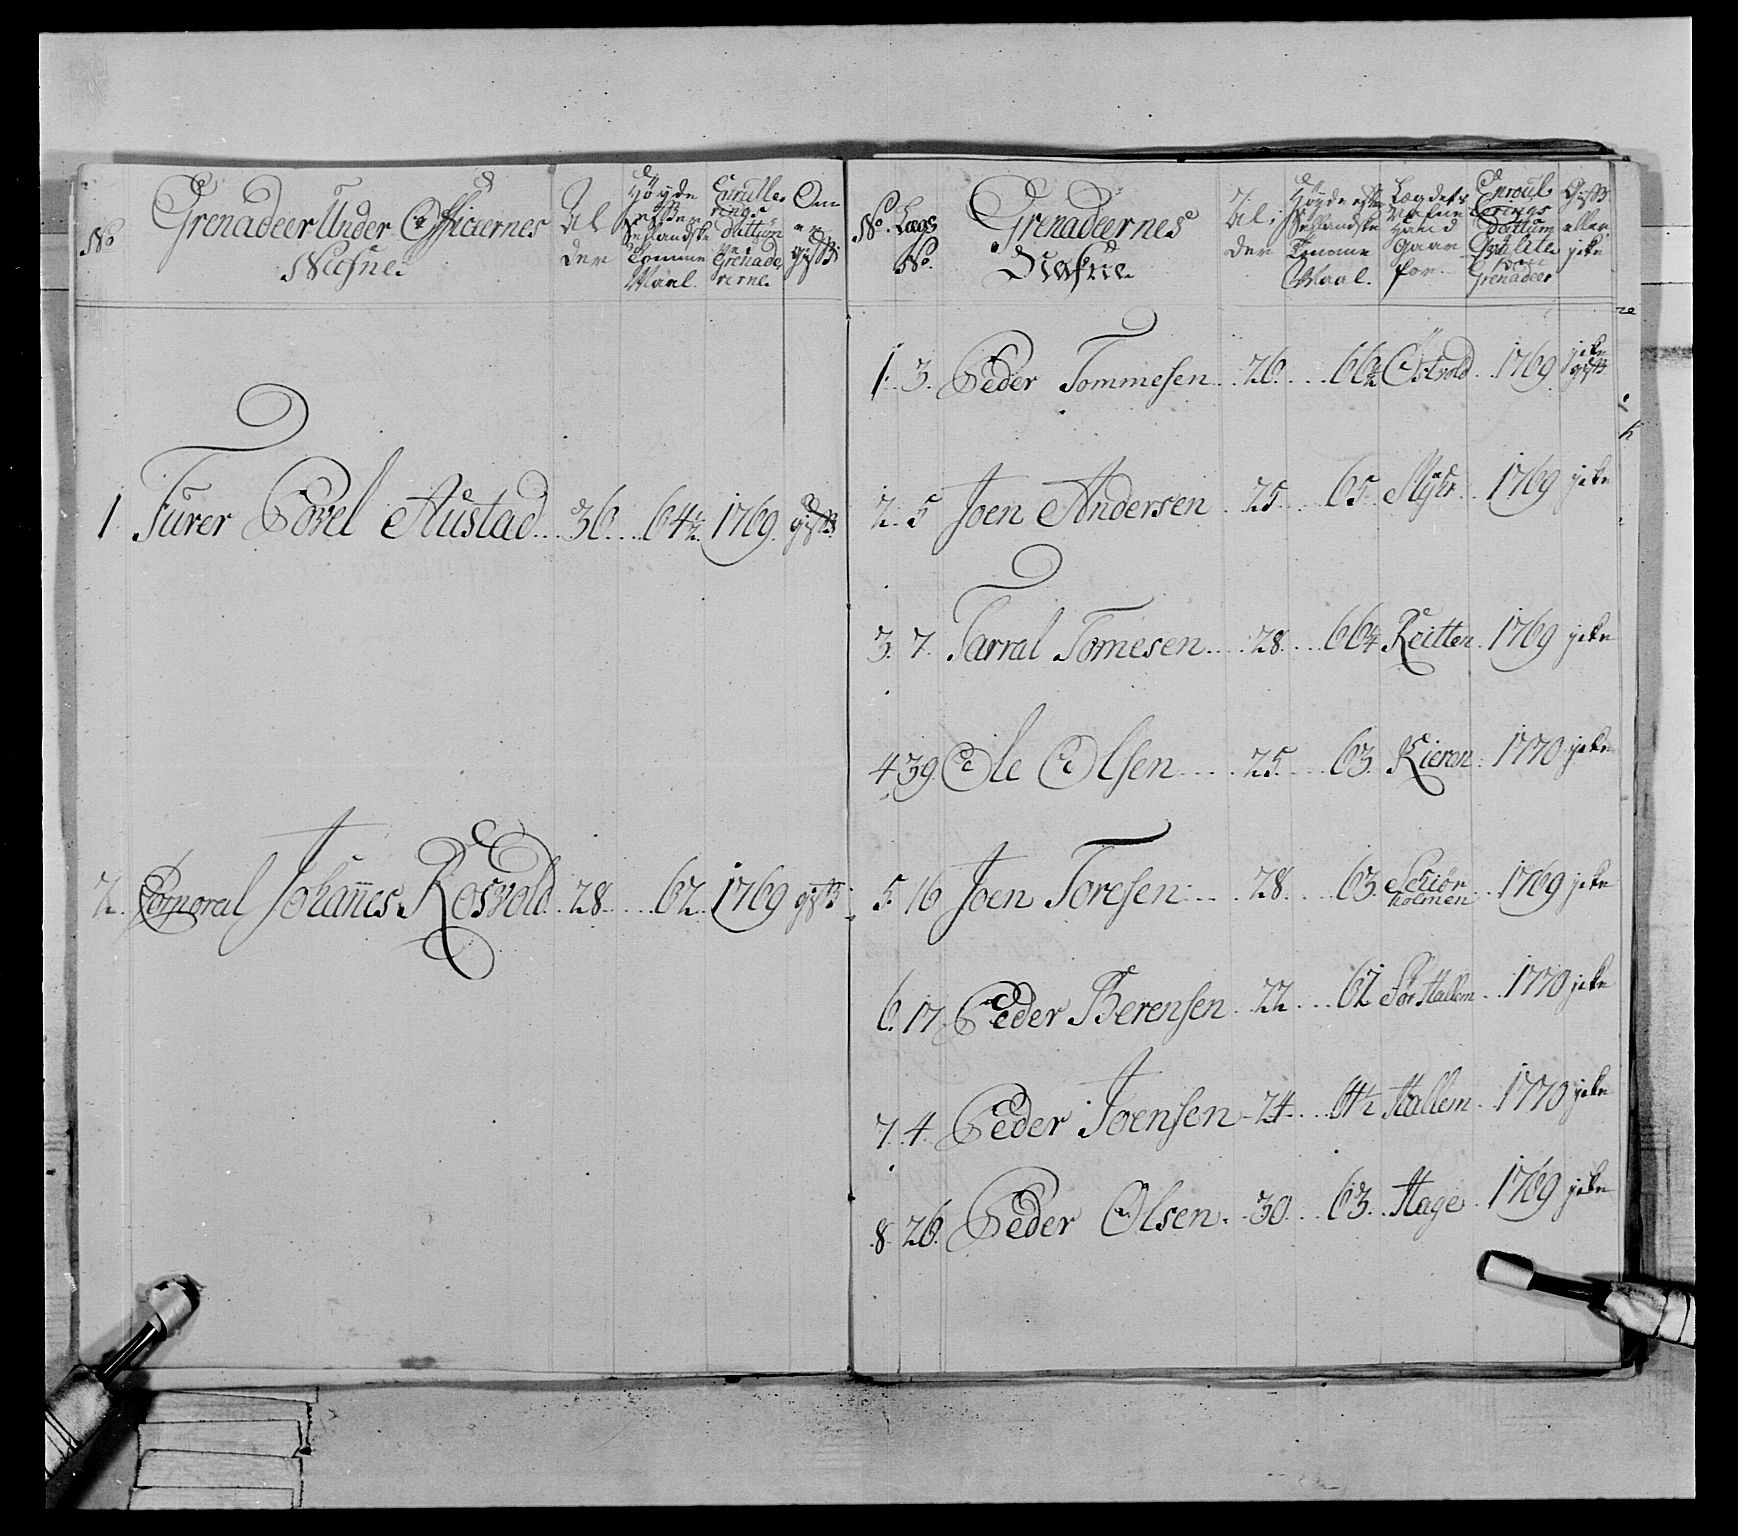 No
Grenadeer Under Officiernes
Nafne.
Al
der
Høyde
efter
Sellandske
Tomme
Maal.
Enrulle
rings
Dattum
Grenade
rerne
Om
gift
1 Furer Povel Austad 36 64½ 1769 gift
2. Corporal Johannes Rosvold 28 62 1769 gift
No. Lægs
No.
Grenadeernes
Nafne
Al
der
Høyde efter
Sellandske
Tomme
Maal.
Lægdets
Nafne
hand
Gaar
for.
Enroul
erings
Dattum
som
Grenadeer
Gift
eller
icke
1. 3. Peder Tommesen 26 66½ Østvold 1769 icke gift
2. 5 Joen Andersen 25 65 Myhr 1769 icke
3. 7. Tarral Tomesen 28 66¼ Reitten 1769 icke
4 39 Ole Olsen 25 63. Kieran 1770 icke
5. 16 Joen Toresen 28 63 Schiør
holmen 1769 icke
6. 17 Peder Berensen 22 62 Sør Hallem 1770 icke
7. 4. Peder Joensen 24 64½ Hallem 1770 icke
8. 26 Peder Olsen 30 63. Hage 1769 icke